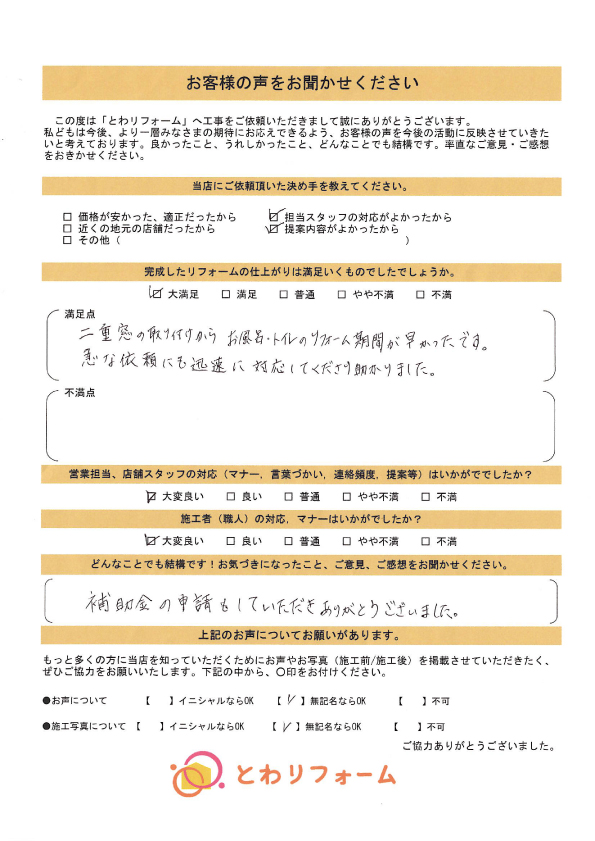 お客様の声をお聞かせください
この度は「とわリフォーム」へ工事をご依頼いただきまして誠にありがとうございます。
私どもは今後、より一層みなさまの期待にお応えできるよう、お客様の声を今後の活動に反映させていきた
いと考えております。良かったこと、うれしかったこと、どんなことでも結構です。率直なご意見・ご感想
をおきかせください。
当店にご依頼頂いた決め手を教えてください。
□ 価格が安かった、適正だったから ☑ 担当スタッフの対応がよかったから
□ 近くの地元の店舗だったから ☑ 提案内容がよかったから
□ その他（ ）
完成したリフォームの仕上がりは満足いくものでしたでしょうか。
☑ 大満足 □ 満足 □ 普通 □ やや不満 □ 不満
満足点
二重窓の取り付けから お風呂・トイレのリフォーム期間が早かったです。
急な依頼にも迅速に対応してくださり助かりました。
不満点
営業担当、店舗スタッフの対応（マナー，言葉づかい，連絡頻度，提案等）はいかがででしたか？
☑ 大変良い □ 良い □ 普通 □ やや不満 □ 不満
施工者（職人）の対応，マナーはいかがでしたか？
☑ 大変良い □ 良い □ 普通 □ やや不満 □ 不満
どんなことでも結構です！お気づきになったこと、ご意見、ご感想をお聞かせください。
補助金の申請もしていただきありがとうございました。
上記のお声についてお願いがあります。
もっと多くの方に当店を知っていただくためにお声やお写真（施工前/施工後）を掲載させていただきたく、
ぜひご協力をお願いいたします。下記の中から、〇印をお付けください。
●お声について 【 】イニシャルならOK 【✓】無記名ならOK 【 】不可
●施工写真について 【 】イニシャルならOK 【✓】無記名ならOK 【 】不可
ご協力ありがとうございました。
とわリフォーム